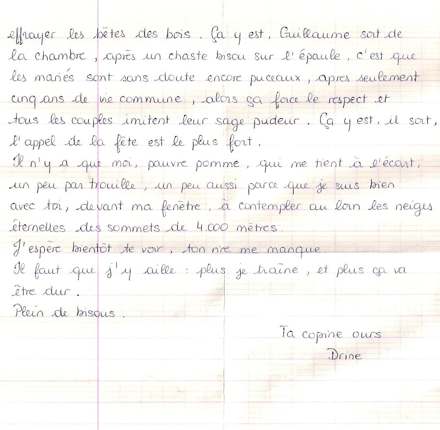 effrayer les bêtes des bois. Ça y est, Guillaume sort de
la chambre, après un chaste bisou sur l'épaule, c'est que
les mariés sont sans doute encore puceaux, apres seulement
cinq ans de vie commune, alors ça force le respect et
tous les couples imitent leur sage pudeur. Ça y est, il sort,
l'appel de la fête est le plus fort.
Il n'y a que moi, pauvre pomme, qui me tient à l'écart,
un peu par trouille, un peu aussi parce que je suis bien
avec toi, devant ma fenêtre, à contempler au loin les neiges
éternelles des sommets de 4.000 mètres.
J'espère bientôt te voir, ton rire me manque.
Il faut que j'y aille : plus je traîne, et plus ça va
être dur.
Plein de bisous.
Ta copine ours
Drine